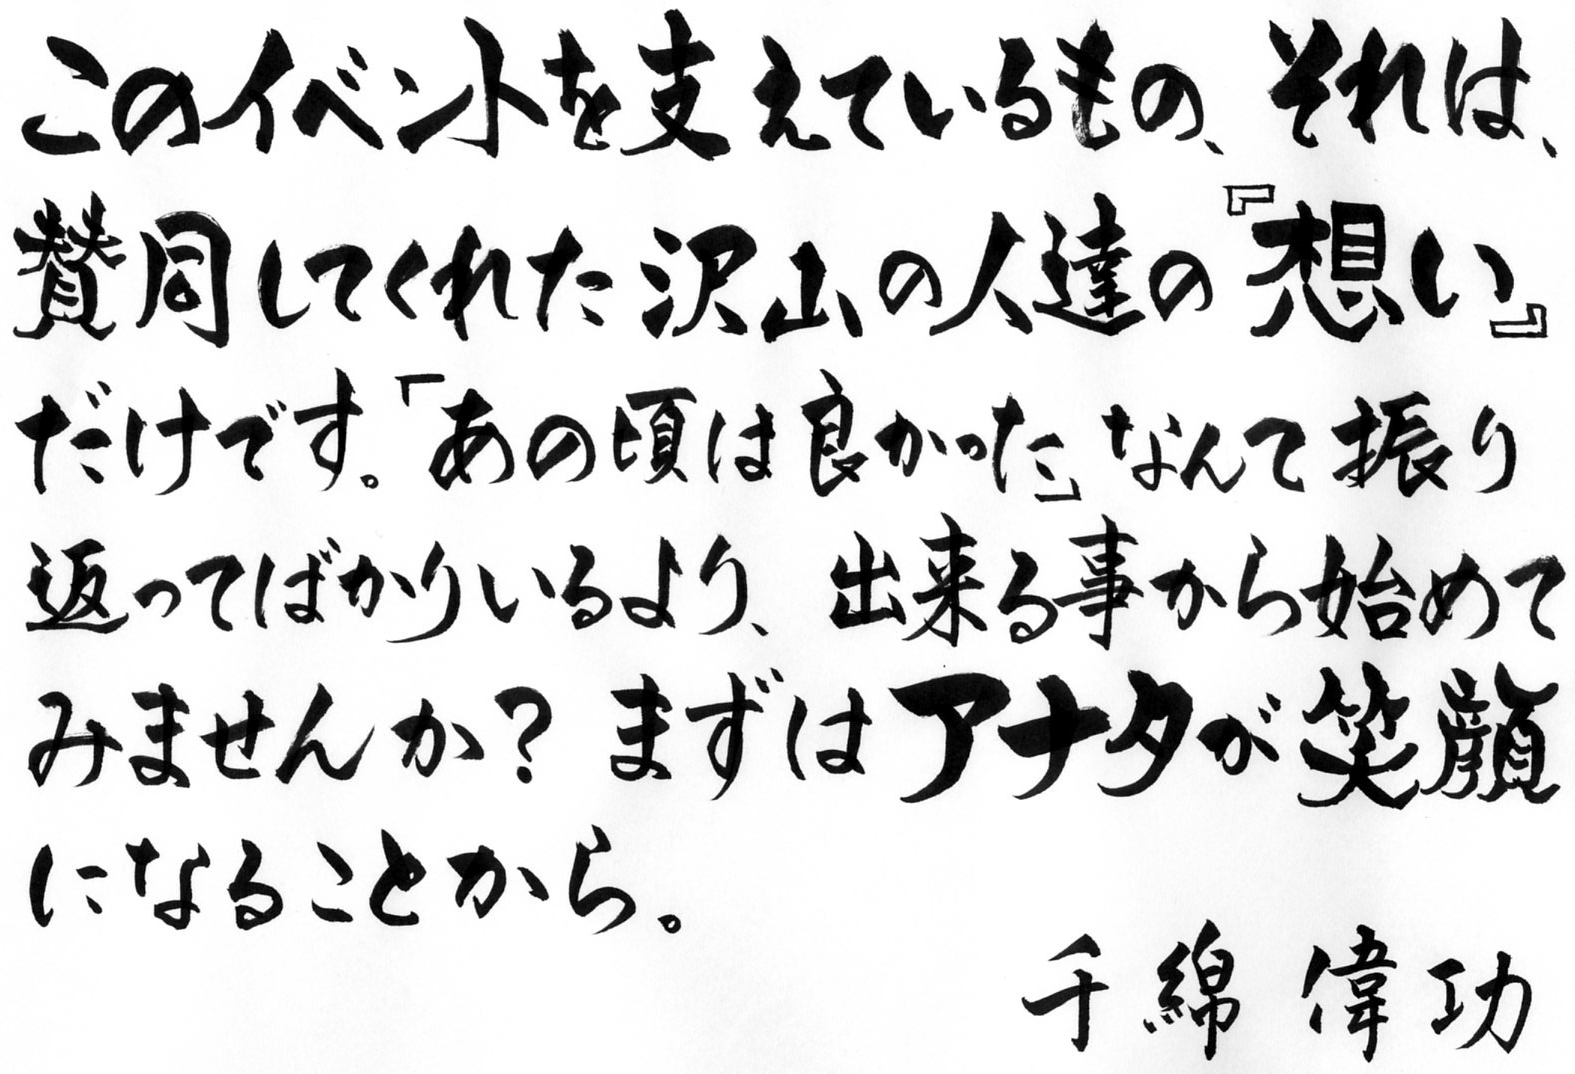 このイベントを支えているもの、それは、
賛同してくれた沢山の人達の『想い』
だけです。「あの頃は良かった」なんて振り
返ってばかりいるより、出来る事から始めて
みませんか？まずはアナタが笑顔
になることから。
千綿偉功